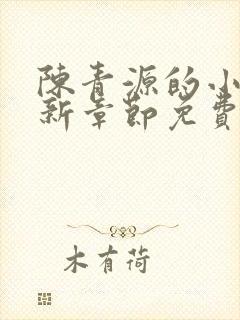 陳青源的小
新章節免費
木有荷